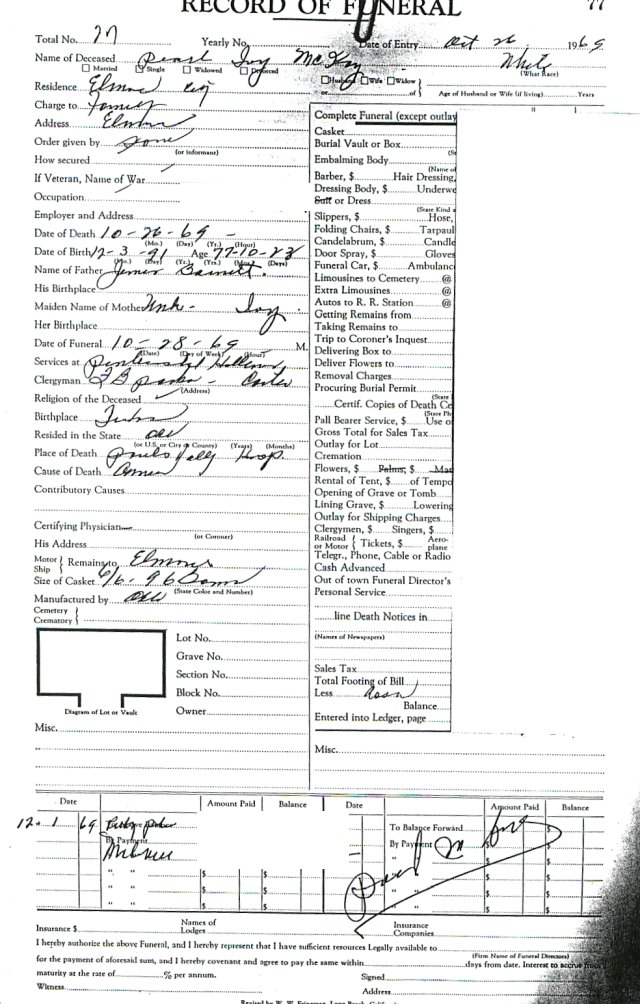 RECORD OF FUNERAL
77
Total No. 77 Yearly No. Date of Entry Oct 26 1969
Name of Deceased Pearl Ivy McKay White
Married Single Widowed Divorced Husband Wife Widow (What Race)
Residence Elmore City or of Age of Husband or Wife (if living) Years
Charge to Family
Address Elmore
Order given by Same
(or informant)
How secured
If Veteran, Name of War
Occupation
Employer and Address
Date of Death 10-26-69
(Mo.) (Day) (Yr.) (Hour)
Date of Birth 12-3-91 Age 77-10-23
(Mo.) (Day) (Yr.) (Yrs.) (Mos.) (Days)
Name of Father James Barnett
His Birthplace
Maiden Name of Mother Unk- Ivy
Her Birthplace
Date of Funeral 10-28-69 M.
(Date) (Day of Week) (Hour)
Services at
Clergyman
(Address)
Religion of the Deceased
Birthplace
Resided in the State
(or U.S. or City or County) (Years) (Months)
Place of Death Pauls Vally Hosp.
Cause of Death
Contributory Causes
Certifying Physician
(or Coroner)
His Address
Motor Ship Remains to Elmore
Size of Casket 6/6-96
(State Color and Number)
Manufactured by
Cemetery
Crematory
Diagram of Lot or Vault
Lot No.
Grave No.
Section No.
Block No.
Owner
Misc.
Complete Funeral (except outlay
Casket
Burial Vault or Box
(St
Embalming Body
(Name of
Barber, $ Hair Dressing,
Dressing Body, $ Underwe
Suit or Dress
(State Kind a
Slippers, $ Hose,
Folding Chairs, $ Tarpaul
Candelabrum, $ Candle
Door Spray, $ Gloves
Funeral Car, $ Ambulanc
Limousines to Cemetery @
Extra Limousines @
Autos to R. R. Station @
Getting Remains from
Taking Remains to
Trip to Coroner's Inquest
Delivering Box to
Deliver Flowers to
Removal Charges
Procuring Burial Permit
(State
Certif. Copies of Death Ce
(State Ph
Pall Bearer Service, $ Use o
Gross Total for Sales Tax
Outlay for Lot
Cremation
Flowers, $ Palms, $ Mat
Rental of Tent, $ of Tempo
Opening of Grave or Tomb
Lining Grave, $ Lowering
Outlay for Shipping Charges
Clergymen, $ Singers, $
Railroad or Motor Tickets, $ Aero-plane
Telegr., Phone, Cable or Radio
Cash Advanced
Out of town Funeral Director's
Personal Service
line Death Notices in
(Names of Newspapers)
Sales Tax
Total Footing of Bill
Less
Balance
Entered into Ledger, page
Misc.
Date Amount Paid Balance Date Amount Paid Balance
12-1 69 To Balance Forward $
By Payment By Payment $
" " " $
" " $ $ " " $
" " $ $ " " $
" " $ $ " " $
Insurance $ Names of Lodges Insurance Companies
I hereby authorize the above Funeral, and I hereby represent that I have sufficient resources Legally available to
(Firm Name of Funeral Directors)
for the payment of aforesaid sum, and I hereby covenant and agree to pay the same within days from date. Interest to accrue from
maturity at the rate of % per annum. Signed
Witness Address